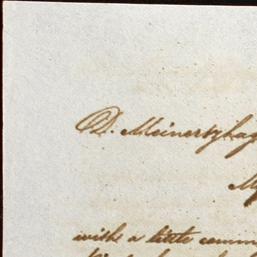 D. Meinertzhag
My
with a little comm